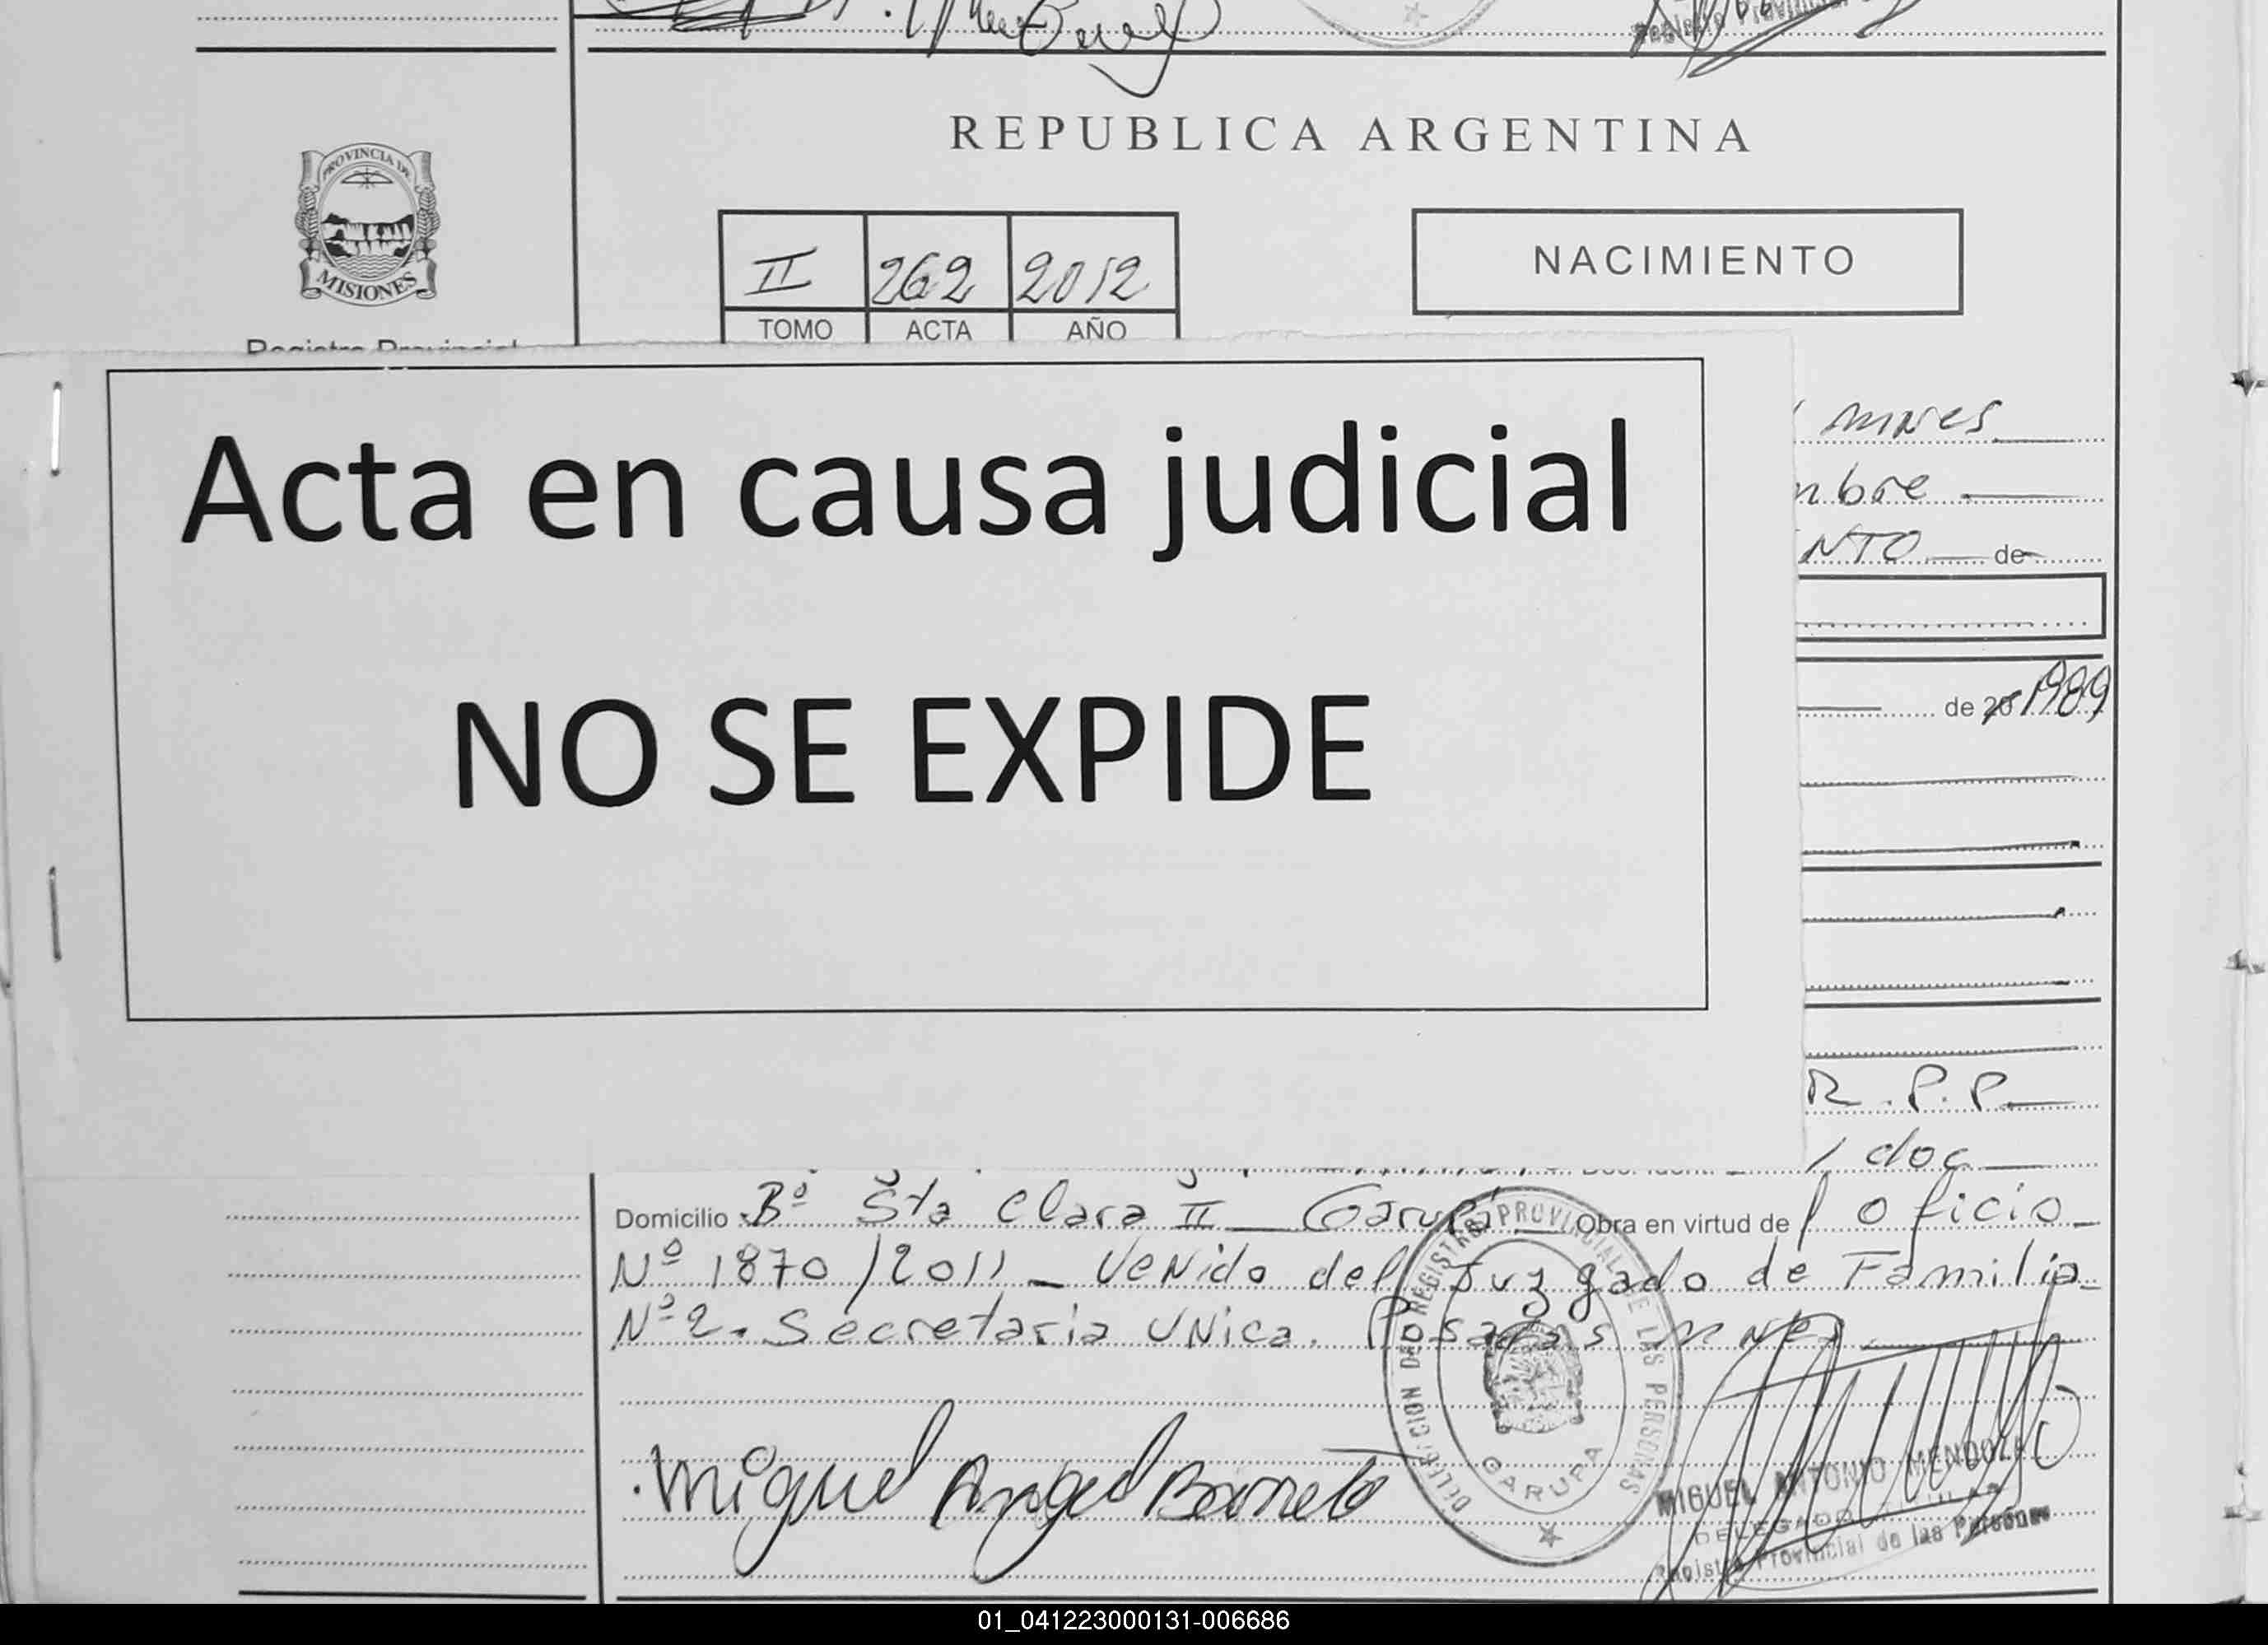 REPUBLICA ARGENTINA
PROVINCIA DE
MISIONES
II 262 2012
TOMO ACTA AÑO
NACIMIENTO
Registro Provincial
Acta en causa judicial
NO SE EXPIDE
mnes
mbre
NTO de
de 20 1989
R.P.P.
doc
Domicilio Bº Sta Clara II Garupá Obra en virtud de l oficio
Nº 1870/2011 _ Venido del Juzgado de Familia
Nº 2. Secretaria Unica. Posadas mnes
DELEGACION DEL REGISTRO PROVINCIAL DE LAS PERSONAS
GARUPA
Miguel Angel Barreto
MIGUEL ANTONIO MENDOZA
DELEGADO TITULAR
Registro Provincial de las Personas
01_041223000131-006686